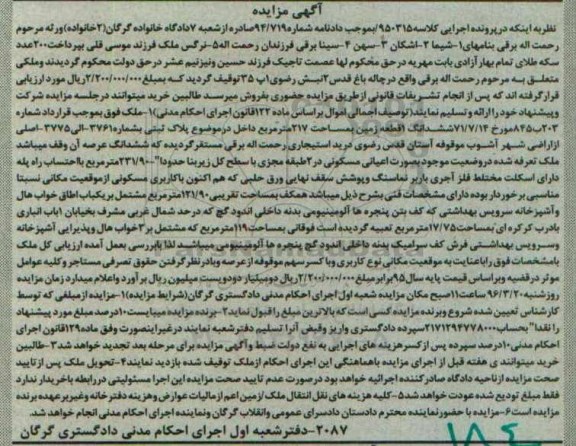 آگهی مزایده
نظریه اینکه در پرونده اجرایی کلاسه ۹۵۰۳۱۵/ بموجب دادنامه شماره ۹۴/۷۱۹ صادره از شعبه ۷ دادگاه خانواده گرگان (۲خانواده) ورثه مرحوم
رحمت اله برقی بنامهای ۱-شیما ۲-اشکان ۳-سهن ۴-سینا برقی فرزندان رحمت اله ۵-نرگس ملک فرزند موسی قلی بپرداخت ۲۰۰ عدد
سکه طلای تمام بهار آزادی بابت مهریه در حق محکوم لها عصمت تاجیک فرزند حسین ونیز نیم عشر در حق دولت محکوم گردیدند وملکی
متعلق به مرحوم رحمت اله برقی واقع در چاله باغ قدس ۲ نبش رضوی ۱پ ۳۵ توقیف گردید که بمبلغ ۲/۲۰۰/۰۰۰/۰۰۰ ریال مورد ارزیابی
قرار گرفته اند که پس از انجام تشریفات قانونی از طریق مزایده حضوری بفروش میرسد طالبین خرید میتوانند در جلسه مزایده شرکت
وپیشنهاد خود را ارائه و تسلیم نمایند (توصیف اجمالی اموال براساس ماده ۱۲۲ قانون اجرای احکام مدنی) ۱- ملک فوق بموجب قرارداد شماره
۲۰۳ب۸۴۵ مورخ ۷۱/۷/۱۴ ششدانگ ۱ قطعه زمین بمساحت ۲۱۷ مترمربع داخل در موضوع پلاک ثبتی بشماره ۳۷۶۱-الی ۳۷۷۵-اصلی
ازاراضی شهر آشوب موقوفه آستان قدس رضوی درید استیجاری رحمت اله برقی مستقر گردیده که ششدانگ عرصه آن وقف میباشد
ملک تعرفه شده در وضعیت موجود بصورت اعیانی مسکونی در ۲ طبقه مجزی با سطح کل زیربنا حدودا" ۲۳۱/۹۰ مترمربع با احتساب راه پله
دارای اسکلت مختلط فلز آجری باربر نماسنگ و پوشش سقف نهایی ورق حلبی که هم اکنون با کاربری مسکونی از موقعیت مکانی نسبتا
مناسبی برخوردار بوده دارای مشخصات فنی بشرح ذیل میباشد همکف بمساحت تقریبی ۱۲۱/۹۰ مترمربع مشتمل بر یکباب اطاق خواب هال
و آشپزخانه سرویس بهداشتی که کف بتن پنجره ها آلومینیومی بدنه داخلی اندود گچ که در حد شمال غربی مشرف بخیابان ۱ باب انباری
بادرب کرکره ای بمساحت ۱۷/۷۵ مترمربع تعبیه گردیده است فوقانی بمساحت ۱۱۹ مترمربع که مشتمل بر ۳ خواب هال و پذیرایی آشپزخانه
وسرویس بهداشتی فرش کف سرامیک بدنه داخلی اندود گچ پنجره ها آلومینیومی میباشید لذا بابررسی بعمل آمده ارزیابی کل ملک
بامشخصات فوق باعنایت به موقعیت مکانی نوع کاربری وباکسر سهم موقوفه از عرصه وبادر نظر گرفتن حقوق تصرفی مستاجر و کلیه عوامل
موثر در قضیه وبراساس قیمت پایه سال ۹۵ برابر مبلغ ۲/۲۰۰/۰۰۰/۰۰۰ ریال دومیلیارد دویست میلیون ریال برآورد واعلام میدارد زمان مزایده
روز شنبه ۹۶/۳/۲۰ ساعت ۱۱ صبح مکان مزایده شعبه اول اجرای احکام مدنی دادگستری گرگان (شرایط مزایده) ۱-مزایده از مبلغی که توسط
کارشناس تعیین شده شروع وبرنده مزایده کسی است که بالاترین مبلغ را قبول نماید ۲-برنده مزایده میبایست ۱۰ درصد مبلغ مورد پیشنهاد
را نقدا" بحساب ۲۱۷۱۲۹۴۷۷۸۰۰۰ سپرده دادگستری واریز وفیش آنرا تسلیم دفتر شعبه نمایند در غیر اینصورت وفق ماده ۱۲۹ قانون اجرای
احکام مدنی ۱۰ درصد سپرده پس از کسر هزینه های اجرایی به نفع دولت ضبط و آگهی مزایده برای مرحله بعد تجدید خواهد شد ۳-طالبین
خرید میتوانند ی هفته قبل از اجرای مزایده باهماهنگی این اجرای احکام از ملک توقیف شده بازدید نمایند ۴-تحویل ملک پس از تایید
صحت مزایده از ناحیه دادگاه صادر کننده اجرائیه خواهد بود در صورت عدم تایید صحت مزایده این اجرا مسئولیتی دررابطه باخریدار ندارد
فقط مبلغ تودیع شده عودت خواهد شد ۵-کلیه هزینه های نقل انتقال ملک/زمین اعم از مالیات عوارض وهزینه دفترخانه وغیر برعهده برنده
مزایده است ۶-مزایده با حضور نماینده محترم دادستان دادسرای عمومی وانقلاب گرگان ونماینده اجرای احکام مدنی انجام خواهد شد.
۲۰۸۷-دفتر شعبه اول اجرای احکام مدنی دادگستری گرگان